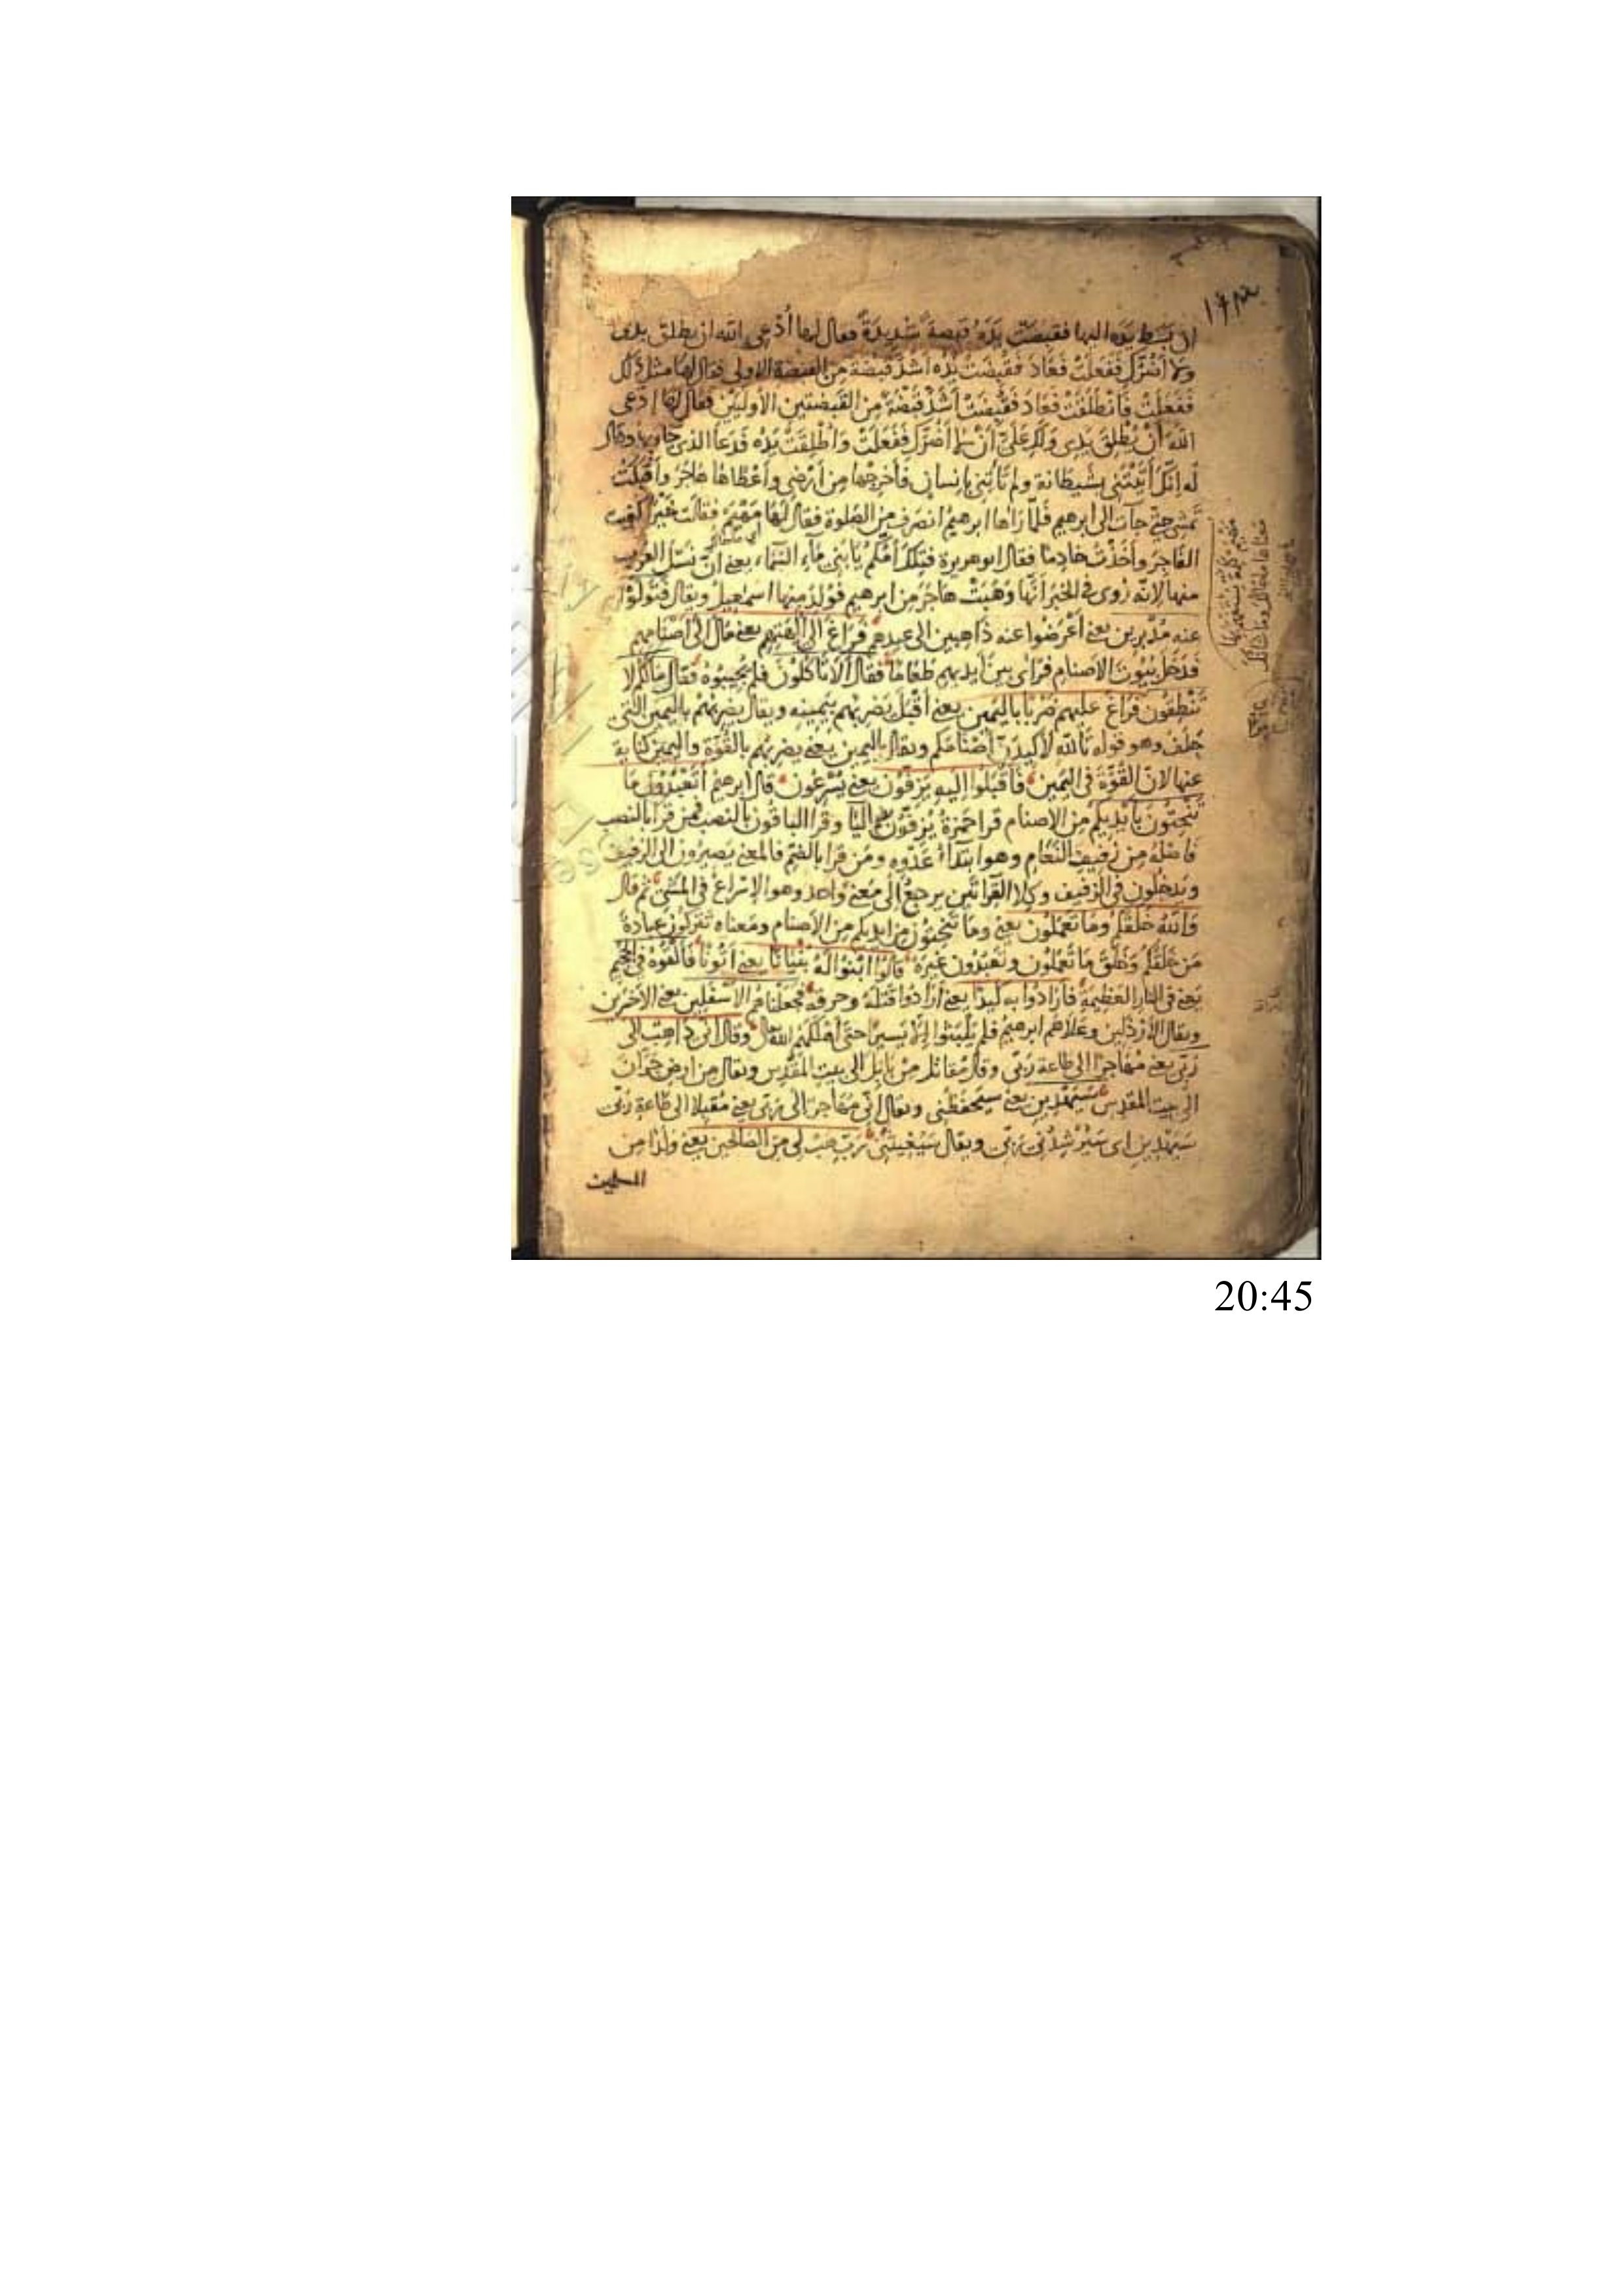 ان بَسَط يَدَه اليها فقبضَتْ يَدُه قبضةً شَدِيدَةً فقال لها اُدْعِي الله ان يطلق يدى
ولا اَضُرّكِ فَفَعَلَتْ فَعَادَ فَقُبِضَتْ يَدُه اَشَدَّ قَبْضَة مِن القبضة الاولى فقال لها مثل ذلك
فَفَعَلَتْ فَانطلَقَتْ فَعَادَ فَقُبِضَتْ اَشَدَّ قَبْضَةً مِن القَبضتين الأُوليَيْن فقال لها ادعى
الله اَنْ يُطْلِقَ يَدِى وَلَكِ عَلَىَّ اَنْ لا اَضُرَّكِ فَفَعَلَتْ وَاُطْلِقَتْ يَدُه فَدَعَا الذى جاء بها وقال
له اِنّكَ اَتَيْتَنِى بشَيطانة ولم تَأتِنى بإنسان فَأخرِجْها مِن اَرْضى وَاَعْطَاها هَاجَرَ وأَقْبَلَتْ
تَمشى حتى جاءت الى ابرهيم فلَمّا رَاها ابرهيمُ انصَرَف مِن الصَّلوة فقال لَها مَهْيَمْ فقالت خَيْرًا كُفِيتُ
الفَاجِرَ واَخَذْتُ خادِمًا فقال ابو هريرة فَتِلْكَ اُمُّكم يَا بَنِى مَاءِ السَّماء يعنى انّ نَسْلَ العَرب
منها لانّه رُوِى فى الخبر اَنّها وَهَبَتْ هَاجَرَ مِن ابرهيم فَوُلِدَ مِنها اسمعيلُ ويقال فَتَوَلَّوْا
عنه مُدْبِرين يعنى اَعْرَضُوا عنه ذَاهِبين الى عيدهم فَرَاغَ الى آلِهَتِهم يعنى مَالَ الى اَصْنامِهم
فَدَخَل بُيُوتَ الاصنام فَرَأى بين اَيديهم طعَامًا فقال اَلَا تَأكلُون فلم يُجِيبُوهُ فقال مَالَكُم لا
تَنْطِقُون فَرَاغَ عليهم ضَرْبًا باليَمين يعنى اَقْبَلَ يَضْرِبُهم بيَمينه ويقال يضربهم باليمين التى
حَلَف وهو قوله تَالله لَاَكيدَنّ اَصْنَامَكم ويقال باليمين يعنى يضربهم بالقُوّة واليمين كناية
عنها لانّ القُوّة فى اليَمين فَاَقْبَلُوا اليهِ يَزِفّون يعنى يُسْرِعُون قال ابرهيمُ اَتَعْبُدُونَ مَا
تَنْحِتون بِأَيْدِيكُم مِن الاصنام قرا حَمْزةُ يُزِفّون بضم اليا وقرا الباقون بالنصب فمن قرا بالنصب
فَاصْلُه مِن زَفيف النَّعَام وهو ابتداءُ عَدْوِه ومَن قرا بالضم فالمعنى يَصيرون الى الزفيف
ويَدخُلون فى الزفيف وكِلا القرائتين يرجعُ الى مَعنى واحد وهو الاِسْراعُ فى المَشْى ثم قال
وَاللهُ خَلَقكُم وَما تَعْمَلُونَ يعنى وما تَنْحِتون مِن ايديكم مِن الاصنام ومَعناه تَتركون عِبادةَ
مَن خَلَقَكُم وَخَلَقَ ما تَعْمَلون وتَعبُدون غيرَه قَالُوا ابْنُوا لَهُ بُنْيانًا يعنى اَتُونًا فَاَلْقُوه فى الجَحيم
يعنى فى النار العَظيمة فَاَرَادُوا بِه كَيْدًا يعنى اَرَادُوا قَتْلَهُ وحرقَه فجعَلْناهُم الاَسْفَلين يعنى الاخَرين
ويقال الاَرْذَلين وعَلَاهم ابرهيمُ فلم يَلْبَثُوا اِلّا يَسيرًا حتى اَهْلَكَهم الله تعالى وقال انى ذاهبٌ الى
رَبّى يعنى مُهَاجرًا الى طاعة رَبّى وقال مُقاتل مِنْ بَابِلَ الى بيت المَقْدِس ويقال مِن ارض حَرّانَ
الى بيت المقدس سَيَهْدِين يعنى سيَحفَظُنى ويقال اِنّى مُهَاجرٌ الى رَبّى يعنى مُقبلًا الى طَاعةِ رَبّى
سَيَهْدِين اى سَيُرشِدُنى رَبّى ويقال سَيُغيثُنى رَبّ هَبْ لى مِن الصَّالحين يعنى وَلَدًا مِن
المسلمين
20:45